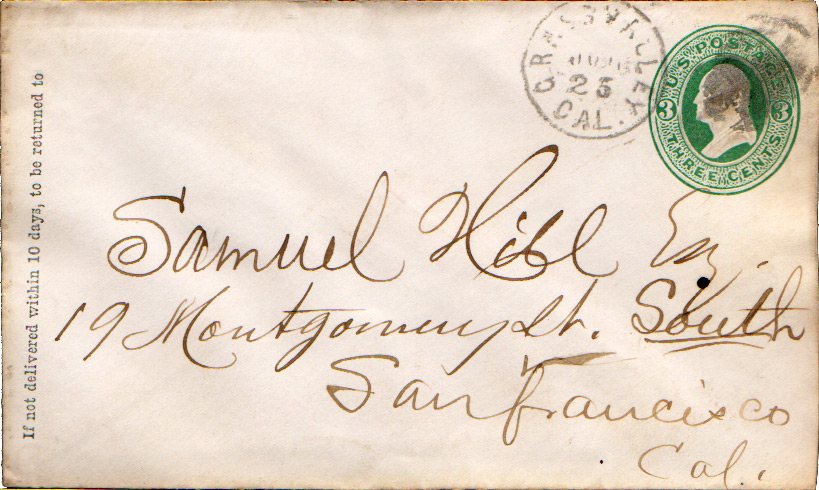 If not delivered within 10 days, to be returned to
GRASS VALLEY
25
CAL.
U.S. POSTAGE
3 3
THREE CENTS
Samuel Hill Esq.
19 Montgomery St. South
San Francisco
Cal.